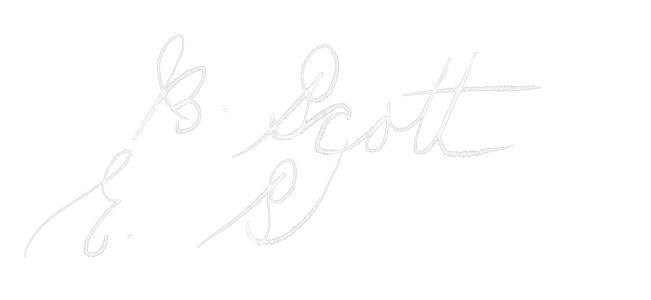 B. Scott
E. S